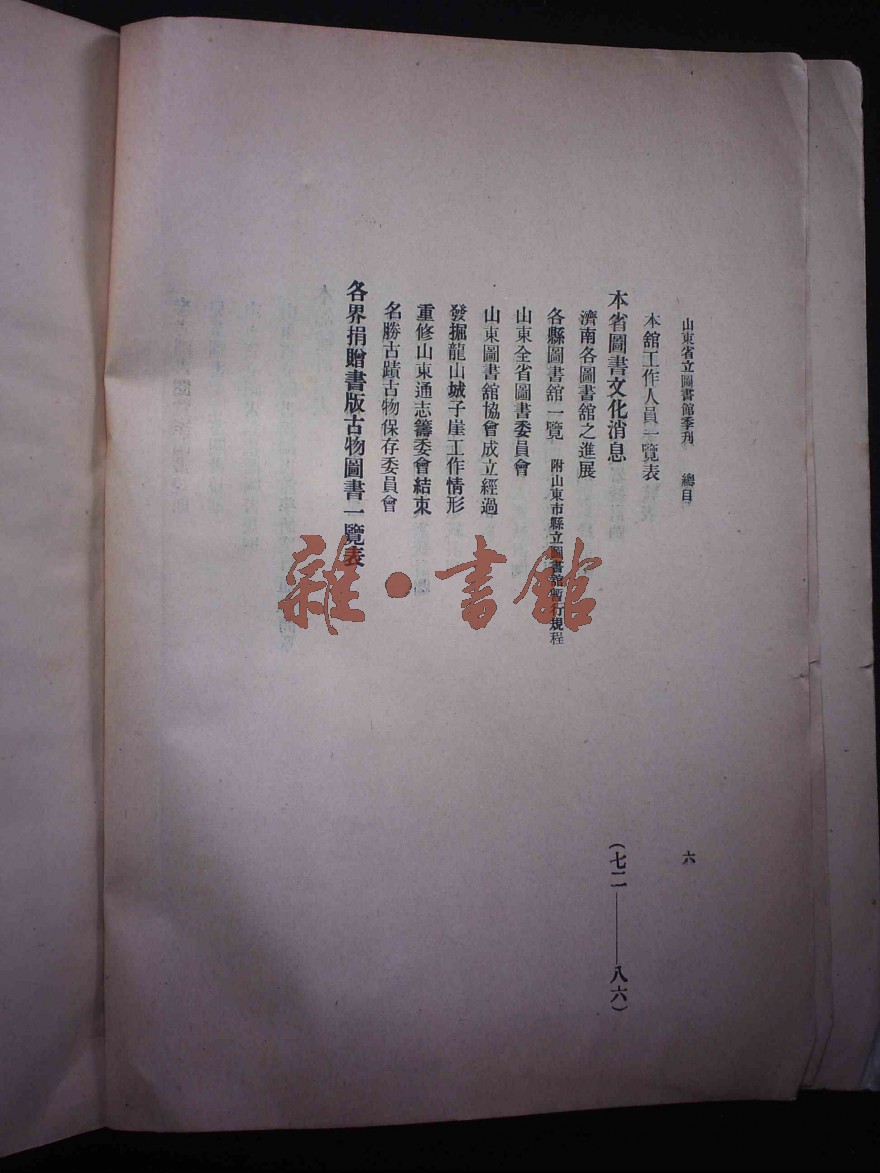 山東省立圖書館季刊　總目
六
本舘工作人員一覽表
本省圖書文化消息
(七二——八六)
濟南各圖書舘之進展
各縣圖書舘一覽　附山東市縣立圖書舘暫行規程
山東全省圖書委員會
山東圖書舘協會成立經過
發掘龍山城子崖工作情形
重修山東通志籌委會結束
名勝古蹟古物保存委員會
各界捐贈書版古物圖書一覽表
雜·書館